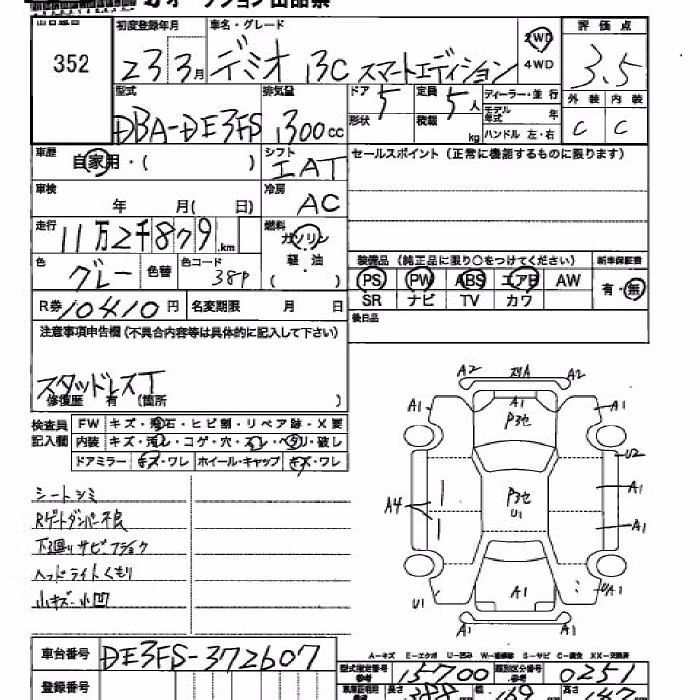 352
初度登録年月 23 3月
車名・グレード デミオ 13C スマートエディション
2WD
4WD
評価点 3.5
外装 内装
C C
型式 DBA-DE3FS
排気量 1300cc
ドア 5 定員 5人
形状 積載 kg
ディーラー・並行
モデル年式 年
ハンドル 左・右
車歴 自家用・( )
シフト IAT
セールスポイント (正常に機能するものに限ります)
車検 年 月( 日)
冷房 AC
走行 11万2千879km
燃料 ガソリン
軽・油
( )
色 グレー 色替 色コード 38P
装備品 (純正品に限り○をつけてください) 新車保証書
PS PW ABS エアB AW 有・無
SR ナビ TV カワ
R券 10410円 名変期限 月 日
後日品
注意事項申告欄(不具合内容等は具体的に記入して下さい)
スタッドレスT
修復歴 有 (箇所 )
検査員記入欄
FW キズ・飛石・ヒビ割・リペア跡・X要
内装 キズ・汚レ・コゲ・穴・スレ・ヘタリ・破レ
ドアミラー キズ・ワレ ホイール・キャップ キズ・ワレ
シートシミ
Rゲートダンパー不良
下廻りサビフショク
ヘッドライトくもり
小キズ・小凹
A2 A2
A1 A1 A1
P3セ
U2
A1
A4 P3セ
U1
A1
U1 A1 UA1
A1 A1
A-キズ E-エクボ U-凹み W-補修跡 S-サビ C-腐食 XX-交換済
車台番号 DE3FS-372607
型式指定番号 15700 類別区分番号 0251
登録番号
長さ 388 幅 169 高さ 147